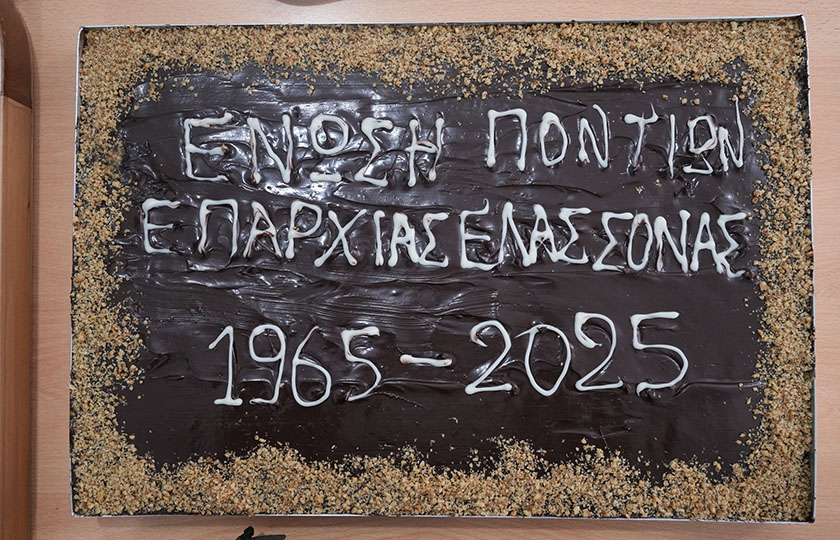 ΕΝΩΣΗ ΠΟΝΤΙΩΝ
ΕΠΑΡΧΙΑΣ ΕΛΑΣΣΟΝΑΣ
1965-2025